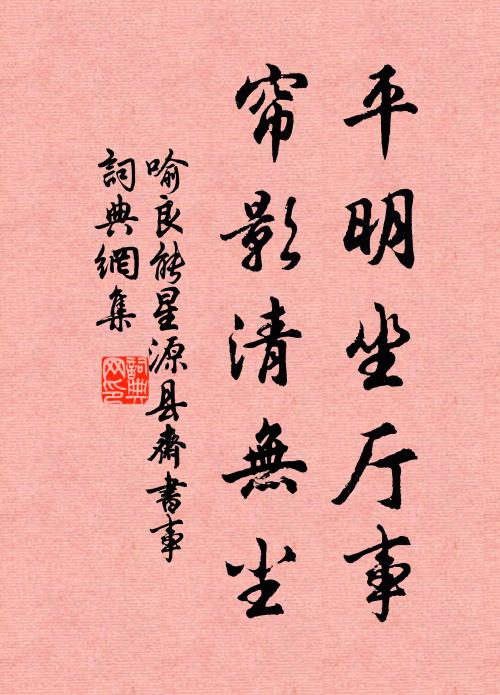 平明坐厅事
帘影清無尘
喻良能星源县齋書事
詞典網集
詞典網印